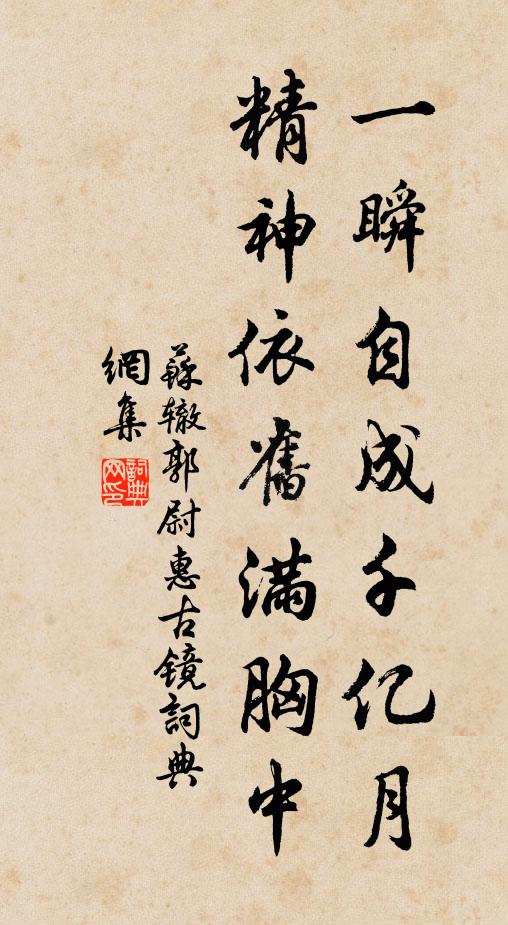 一瞬自成千亿月
精神依舊满胸中
蘇辙郭尉惠古镜詞典
網集
詞典
网印